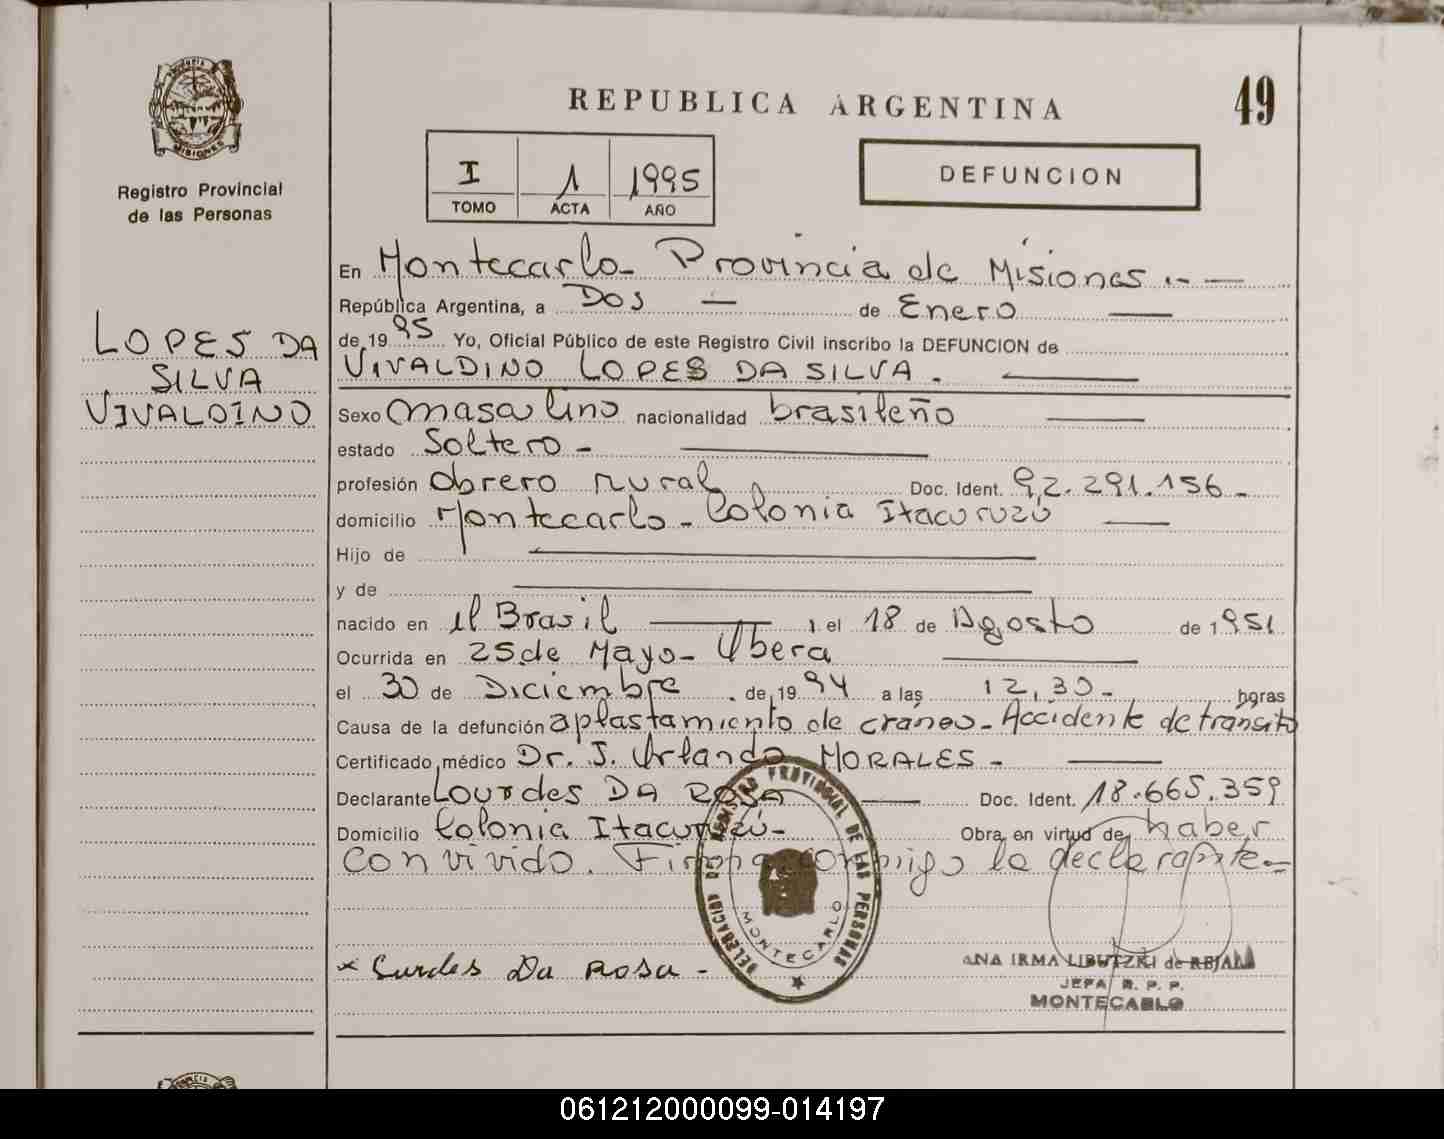 REPUBLICA ARGENTINA
49
I 1 1995
TOMO ACTA AÑO
DEFUNCION
MISIONES
Registro Provincial
de las Personas
LOPES DA
SILVA
VIVALDINO
En Montecarlo - Provincia de Misiones .-
República Argentina, a Dos - de Enero
de 1995 Yo, Oficial Público de este Registro Civil inscribo la DEFUNCION de
VIVALDINO LOPES DA SILVA.
Sexo masculino nacionalidad brasileño
estado Soltero -
profesión obrero rural Doc. Ident. 92.291.156-
domicilio Montecarlo - Colonia Itacuruzú
Hijo de
y de
nacido en el Brasil , el 18 de Agosto de 1951
Ocurrida en 25 de Mayo - Obera
el 30 de Diciembre de 1994 a las 12,30- horas
Causa de la defunción aplastamiento de cráneo - Accidente de transito
Certificado médico Dr. J. Orlando MORALES -
Declarante Lourdes DA ROSA Doc. Ident. 18.665.359
Domicilio Colonia Itacuruzú- Obra en virtud de haber
convivido. Firma conmigo la declarante-
DELEGACION DEL REGISTRO PROVINCIAL DE LAS PERSONAS
MONTECARLO
x Lurdes Da Rosa -
ANA IRMA LIBUTZKI de
JEFA R. P. P.
MONTECARLO
061212000099-014197